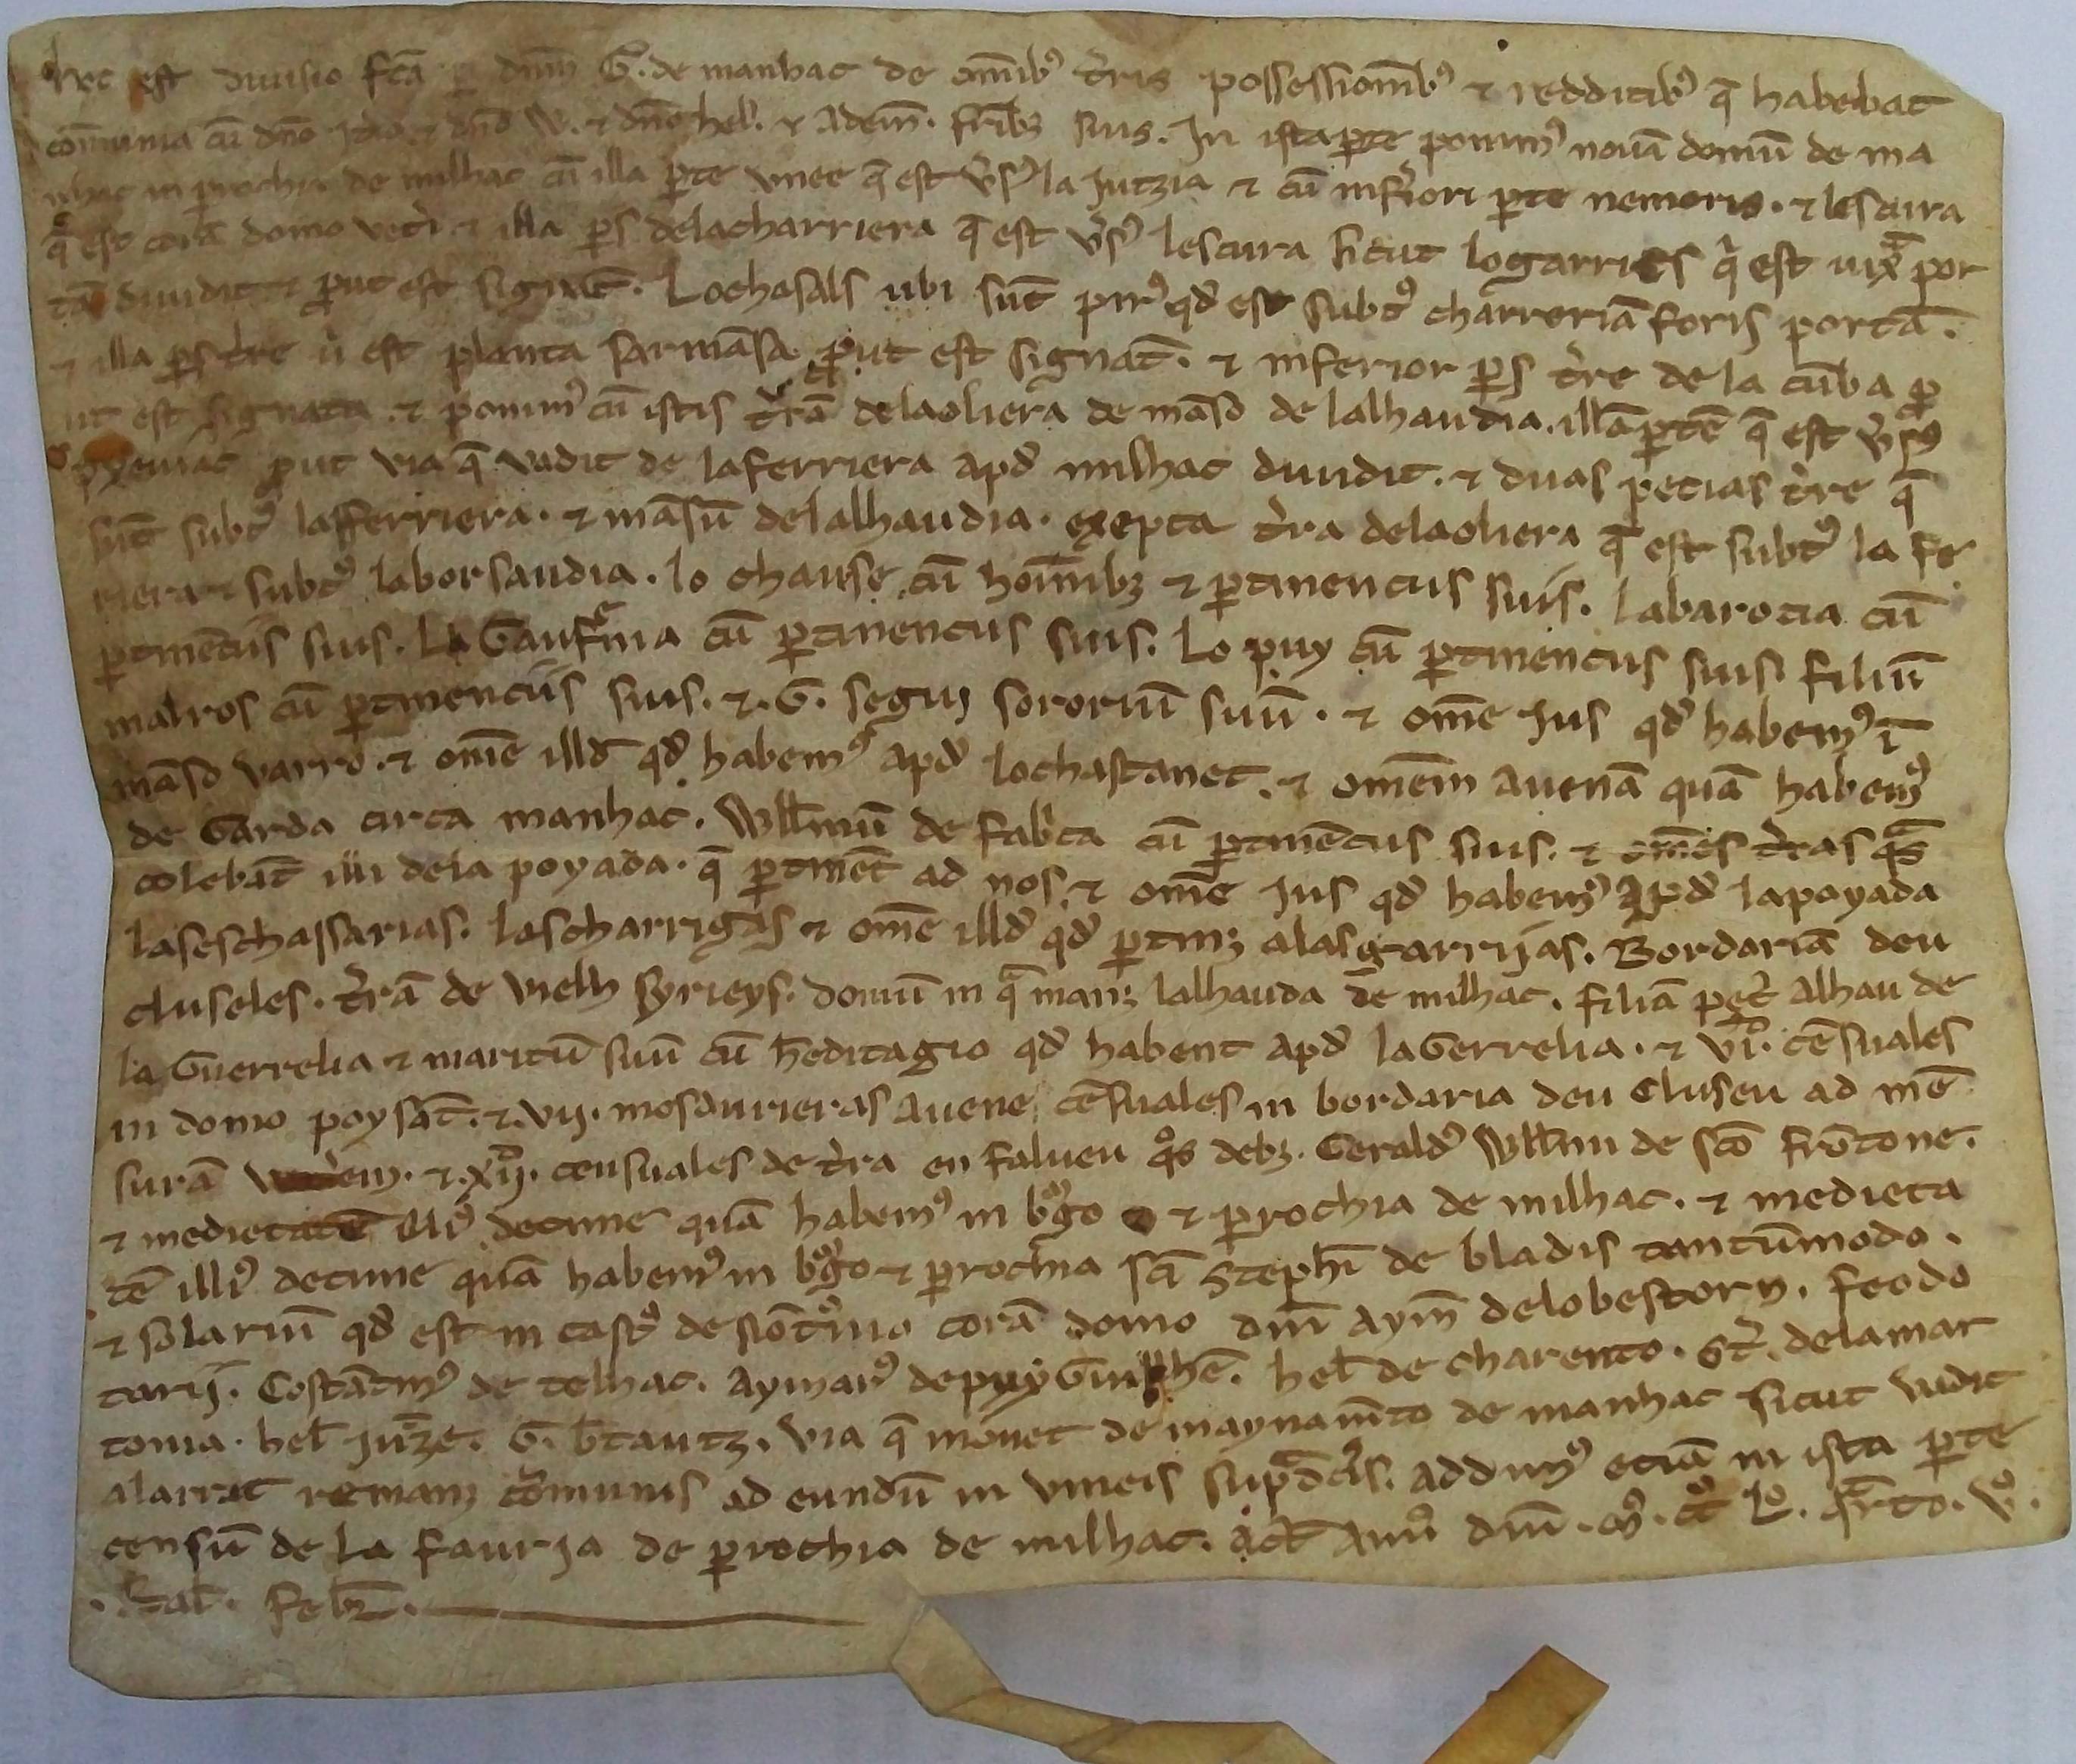 hec est diuisio fcā p dnm G. de manhac de omībꝰ t̓ris possessionibꝰ ⁊ redditibꝰ q̄ habebat
cōmunia cū dno Jtio. ⁊ dno W. ⁊ dno hel'. ⁊ Adem̄. fribꝫ suis. In ista ꝑte ponimꝰ nouā domū de ma
nhac in ꝑrochia de milhac cū illa ꝑte vinee q̄ est v̓sꝰ la Jutzia ⁊ cū inf̓iori ꝑte nemoris. ⁊ lescura
q̄ est corā domo vet̓i ⁊ illa ꝑs delacharriera q̄ est v̓sꝰ lescura sicut logarrics q̄ est iuxᵃ por
tā diuidit ⁊ ꝓut est signat̄. Lochasals ubi sūt pirꝰ qd̓ est subtꝰ charreriā foris portā.
⁊ illa ꝑs t̓re u̓ est planta sarmāsa ꝓut est signat̄. ⁊ inferior ꝑs t̓re de la cūba ꝓ
ut est signata. ⁊ ponimꝰ cū istis t̓rā delaoliera de māso de lalhaudia. illā ꝑtē q̄ est v̓sꝰ
ꝓut via q̄ vadit de laferriera apd̓ milhac diuidit. ⁊ duas pecias t̓re q̄
sūt subtꝰ lafferriera. ⁊ māsū delalhaudia. exepta t̓ra delaoliera q̄ est subtꝰ la fe
riera ⁊ subtꝰ laborsaudia. lo chause cū homībꝫ ⁊ ꝑtinenciis suis. labarocia cū
ꝑtinēciis suis. La Gaufᵉnia cū ꝑtinenciis suis. Lo puy cū ꝑtinenciis suis. filiū
malros cū ꝑtinenciis suis. ⁊. G. seguī sororiū suū. ⁊ om̄e Jus qd̓ habemꝰ ī
māso varro. ⁊ om̄e illd̓ qd̓ habemꝰ apd̓ lochastanet. ⁊ omēm auenā quā habemꝰ
de Garda circa manhac. Wllmū de fabᵉca cū ꝑtinēciis suis. ⁊ om̄es t̓ras qᵃs
colebāt illi dela poyada. q̄ ꝑtinēt ad nos. ⁊ om̄e Jus qd̓ habemꝰ apd̓ lapoyada
laseschassarias. lascharrigas ⁊ om̄e illd̓ qd̓ ꝑtinꝫ alasgarrijas. Bordariā deu
cluseles. t̓rā de vielh syrieys. domū in qᵃ manꝫ lalhauda de milhac. filiā pet̓ alhau de
la Guerrelia ⁊ maritū suū cū h̓editagio qd̓ habent apd̓ laGerrelia. ⁊ vi. cēsuales
in domo poysāt. ⁊. vij. mosdurieras auene cēsuales in bordaria deu Cluseu ad mē
surā. ⁊. xij. censuales de t̓ra en faluen qᵒs debꝫ. Gerald̓ Wllmi de sco frōtone.
⁊ medietatē illiꝰ decime quā habemꝰ in bᵒgo ⁊ ꝑrochia de milhac. ⁊ medieta
tē illiꝰ decime quā habemꝰ in bᵒgo ⁊ ꝑrochia sci Stephi de bladis tantūmodo.
⁊ solariū qd̓ est in castᵒ de nōtᵒnio corā domo dni aym̄ delobestorn. feodo
tarij. Costātinꝰ de telhac. aymarꝰ depuyGuilhē. hel' de charento. st̓. delamar
tonia. hel' Juzᵉe. G. b̓tautz. via q̄ mouet de maynamēto de manhac sicut vadit
alarrat remanꝫ cōmunis ad eundū in vineis supᵃdcis. addimꝰ eciā in ista ꝑte
censū de la faurja de ꝑrochia de milhac. act̄ Anno dni. mº. ccº Lº. qᵃrto. vº.
. kal'. febr̄.